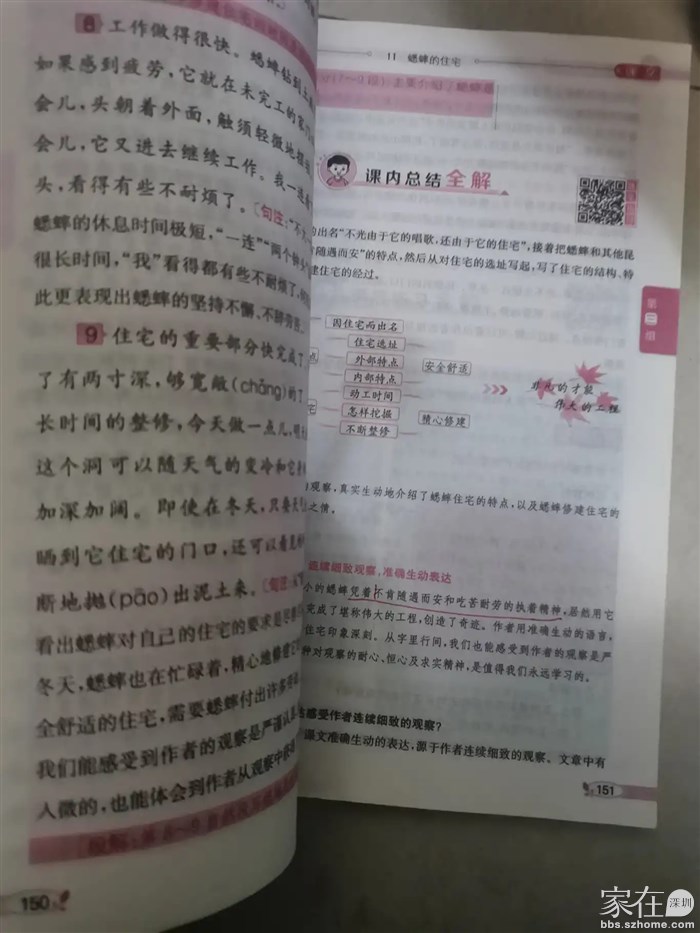 8 工作做得很快。蟋蟀钻到土
如果感到疲劳，它就在未完工的家
会儿，头朝着外面，触须轻微地摆
会儿，它又进去继续工作。我一连
头，看得有些不耐烦了。〔句注："不
蟋蟀的休息时间极短，"一连""两个
很长时间，"我"看得都有些不耐烦了，
此更表现出蟋蟀的坚持不懈、不辞劳
9 住宅的重要部分快完成了
了有两寸深，够宽敞(chǎng)的了
长时间的整修，今天做一点儿，明
这个洞可以随天气的变冷和它
加深加阔。即使在冬天，只要天气
晒到它住宅的门口，还可以看见
断地抛(pāo)出泥土来。〔句注：
看出蟋蟀对自己的住宅的要求是尽
冬天，蟋蟀也在忙碌着，精心地修建
全舒适的住宅，需要蟋蟀付出许多
我们能感受到作者的观察是严谨认真
人微的，也能体会到作者从观察中
150
11 蟋蟀的住宅
课内总结全解
的出名"不光由于它的唱歌，还由于它的住宅"，接着把蟋蟀和其他昆
肯随遇而安"的特点，然后从对住宅的选址写起，写了住宅的结构、特
建住宅的经过。
第三组
因住宅而出名
住宅选址
外部特点
安全舒适
内部特点
动工时间
怎样挖掘
精心修建
不断整修
非凡的才能
伟大的工程
观察，真实生动地介绍了蟋蟀住宅的特点，以及蟋蟀修建住宅的
之情。
连续细致观察，准确生动表达
小的蟋蟀凭着不肯随遇而安和吃苦耐劳的执着精神，居然用它
完成了堪称伟大的工程，创造了奇迹。作者用准确生动的语言，
住宅印象深刻。从字里行间，我们也能感受到作者的观察是严
种对观察的耐心、恒心及求实精神，是值得我们永远学习的。
感受作者连续细致的观察？
课文准确生动的表达，源于作者连续细致的观察。文章中有
151
家在深圳
bbs.szhome.com